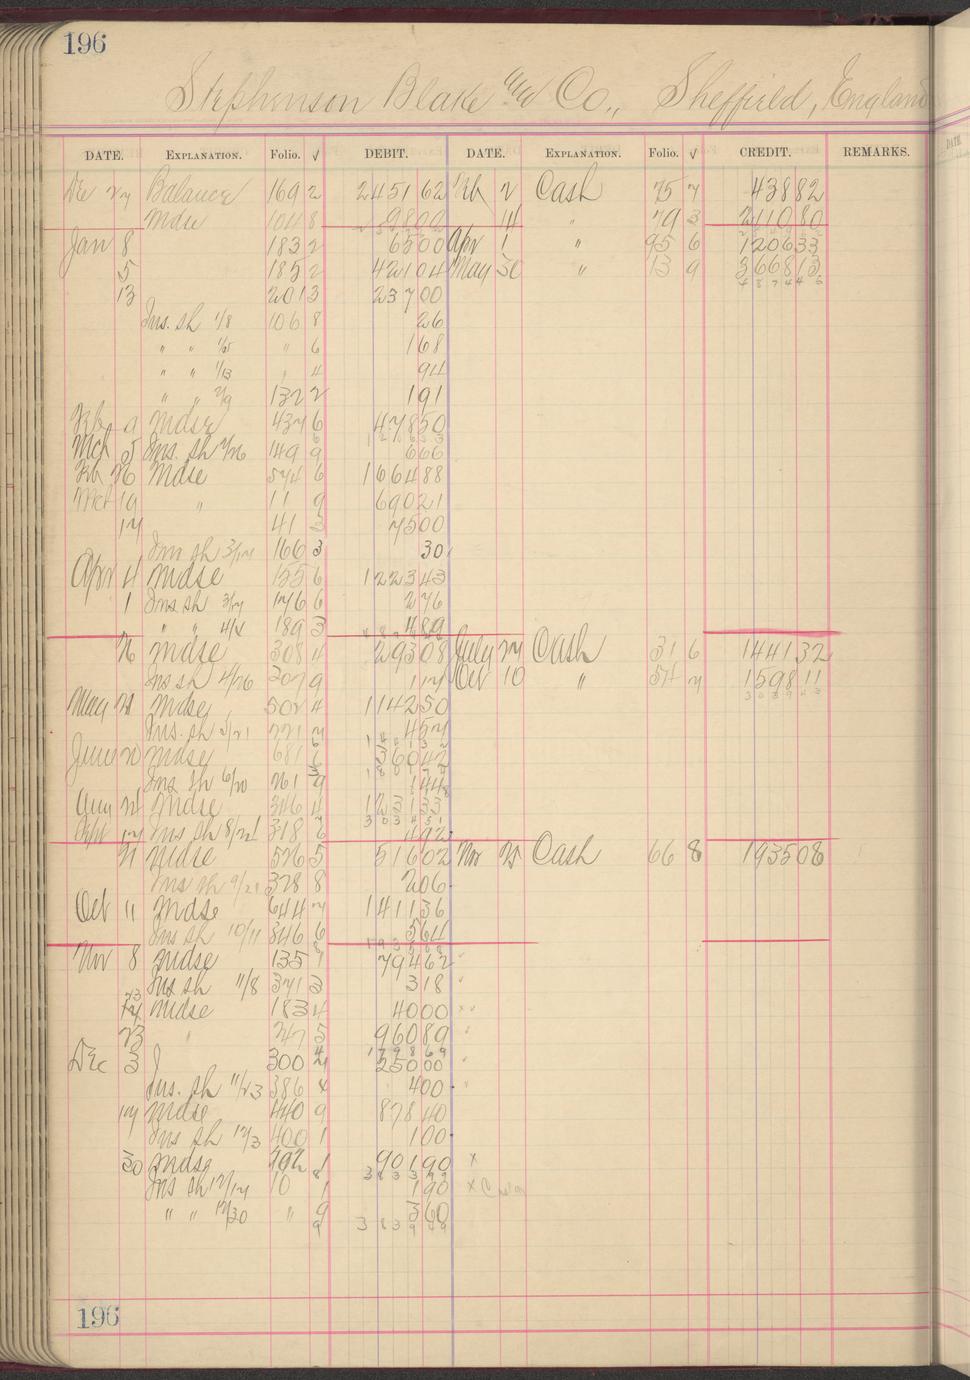 196
Stephenson Blake and Co., Sheffield, England
DATE. EXPLANATION. Folio. √ DEBIT. DATE. EXPLANATION. Folio. √ CREDIT. REMARKS.
Dec 27 Balance 169 2 2451 62 Feb 2 Cash 75 7 438 82
Mdse 104 8 98 00 14 " 79 3 2110 80
Jan 8 183 2 65 00 Apr 1 " 95 6 1206 33
5 185 2 421 04 May 30 " 13 9 3668 13
13 201 3 237 00
Ins. sh 1/8 106 8 26
" " 1/5 " 6 1 68
" " 1/13 " 4 94
" " 2/9 132 2 1 91
Feb 9 Mdse 437 6 478 50
Mch 5 Ins. sh 2/26 149 9 6 66
Feb 26 Mdse 574 6 1664 88
Mch 19 " 11 9 690 21
17 41 3 75 00
Ins sh 3/17 166 3 30
Apr 4 Mdse 155 6 1223 43
1 Ins sh 3/17 176 6 2 76
" " 4/4 189 3 4 89
26 Mdse 308 4 293 08 July 27 Cash 31 6 1441 32
Ins sh 4/26 207 9 1 17 Oct 10 " 54 7 1598 11
May 21 Mdse 502 4 1142 50
Ins. sh 5/21 221 7 4 57
June 20 Mdse 681 6 360 42
Ins sh 6/20 261 9 1 44
Aug 24 Mdse 346 4 1231 33
Sept 17 Ins sh 8/24 318 6 4 92
21 Mdse 526 5 516 02 Nov 25 Cash 66 8 1935 08
Ins sh 9/21 328 8 2 06
Oct 11 Mdse 644 7 1411 36
Ins sh 10/11 346 6 5 64
Nov 8 Mdse 135 7 794 62
Ins sh 11/8 371 3 3 18
Mdse 183 4 40 00
23 " 247 5 960 89
Dec 3 300 250 00
Ins. sh 11/23 386 4 4 00
17 Mdse 440 9 878 40
Ins sh 12/3 400 1 1 00
30 Mdse 1 901 90
Ins sh 12/17 10 1 1 90
" " 12/30 " 9 3 60
9 3839 49
196